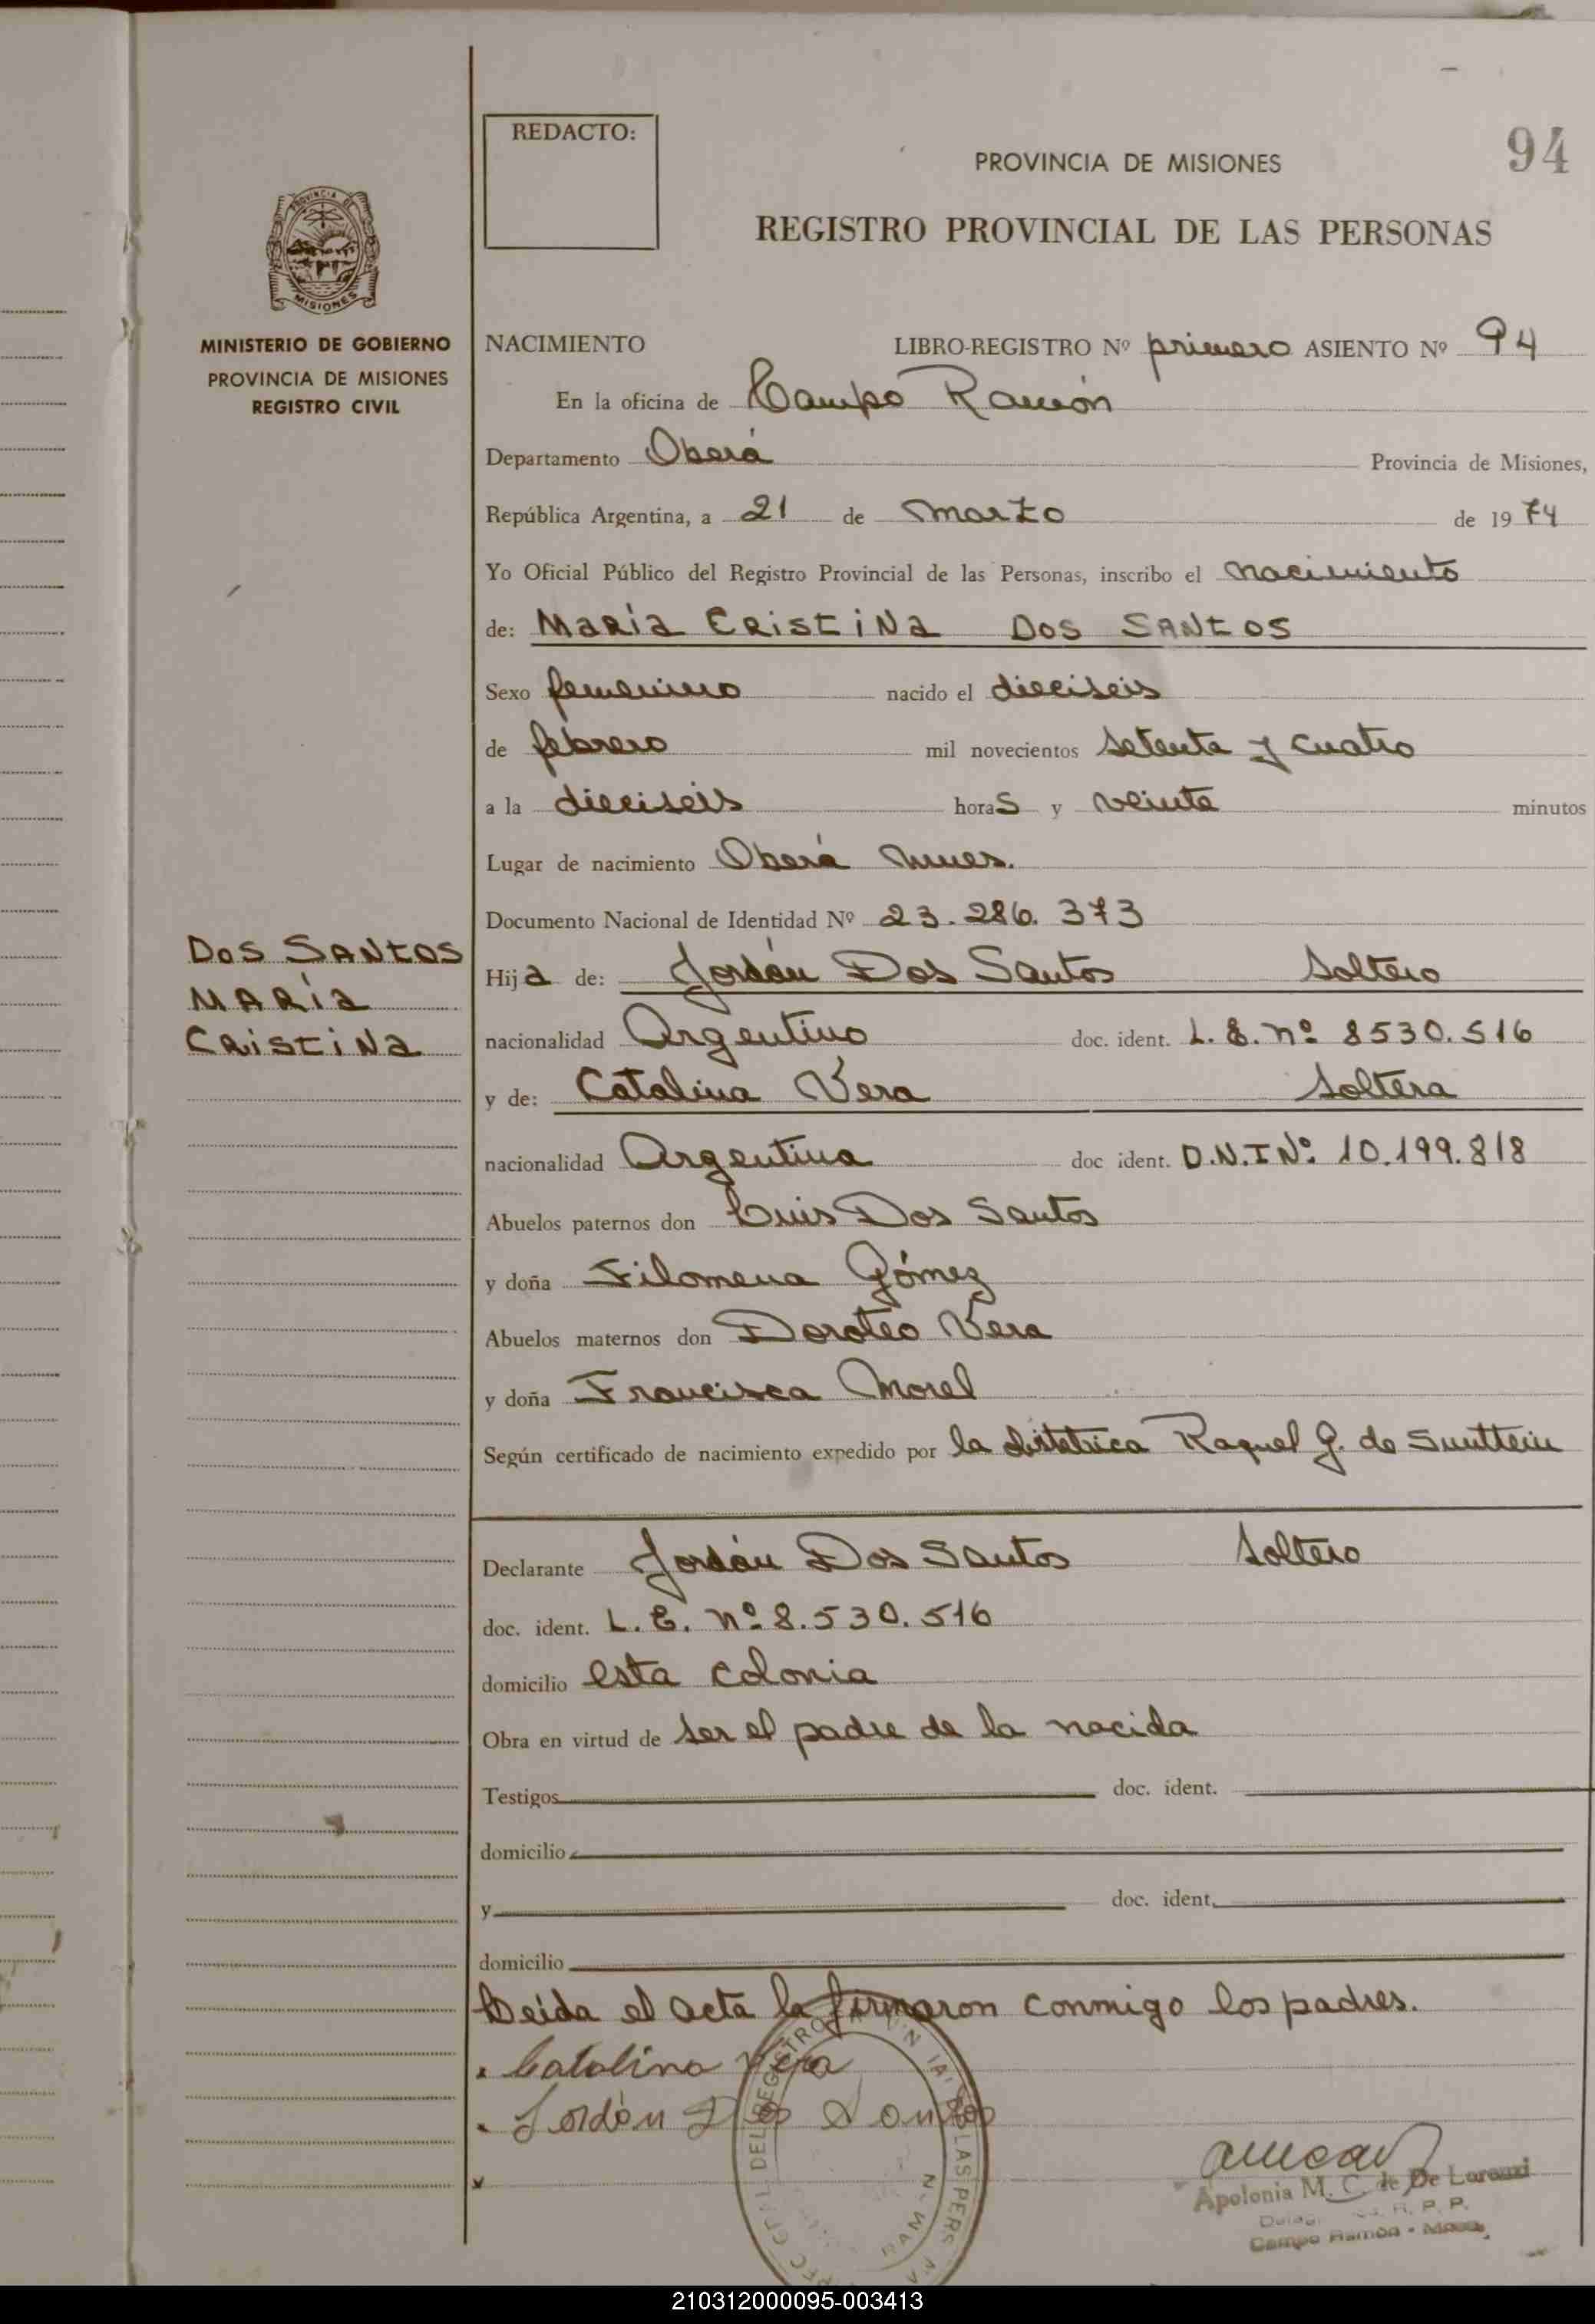 REDACTO:
PROVINCIA DE MISIONES
94
REGISTRO PROVINCIAL DE LAS PERSONAS
PROVINCIA DE
MISIONES
MINISTERIO DE GOBIERNO
PROVINCIA DE MISIONES
REGISTRO CIVIL
NACIMIENTO LIBRO-REGISTRO Nº primero ASIENTO Nº 94
En la oficina de Campo Ramón
Departamento Oberá Provincia de Misiones,
República Argentina, a 21 de marzo de 1974
Yo Oficial Público del Registro Provincial de las Personas, inscribo el nacimiento
de: María Cristina Dos Santos
Sexo femenino nacido el dieciseis
de febrero mil novecientos setenta y cuatro
a la dieciseis horas y veinte minutos
Lugar de nacimiento Oberá Mnes.
Documento Nacional de Identidad Nº 23.286.373
Dos Santos
María
Cristina
Hija de: Jordán Dos Santos soltero
nacionalidad Argentino doc. ident. L. E. nº 8530.516
y de: Catalina Vera soltera
nacionalidad Argentina doc ident. D.N.I Nº 10.199.818
Abuelos paternos don Luis Dos Santos
y doña Filomena Gómez
Abuelos maternos don Doroteo Vera
y doña Francisca Morel
Según certificado de nacimiento expedido por la obstetrica Raquel G. de
Declarante Jordán Dos Santos soltero
doc. ident. L. E. nº 8.530.516
domicilio esta colonia
Obra en virtud de ser el padre de la nacida
Testigos doc. ident.
domicilio
y doc. ident.
domicilio
Leída el acta la firmaron conmigo los padres.
Catalina Vera
Jordán Dos Santos
Apolonia M. C. de De Lorenzi
R. P. P.
Campo Ramón - Mnes.
210312000095-003413